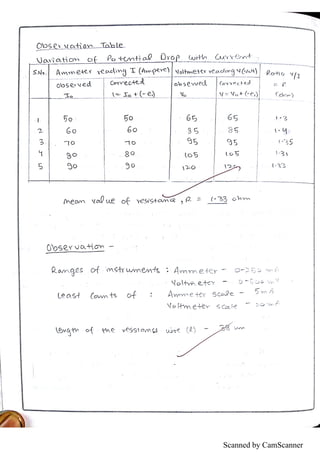 Observation Table
Variation of Potential Drop with Current.
S.No. Ammeter reading I (Ampere) Voltmeter reading V (volt) Ratio V/I
observed Corrected observed Corrected = R
I₀ I = I₀ + (-e₁) V₀ V = V₀ + (-e₂) (ohm)
1 50 50 65 65 1.3
2 60 60 85 85
3 70 70 95 95 1.35
4 80 80 105 105 1.31
5 90 90 120 120 1.33
mean value of resistance, R = 1.33 ohm
Observation -
Ranges of instruments : Ammeter -
Voltmeter -
Least Counts of : Ammeter scale - 5mA
Voltmeter scale -
length of the resistance wire (l) - cm
Scanned by CamScanner